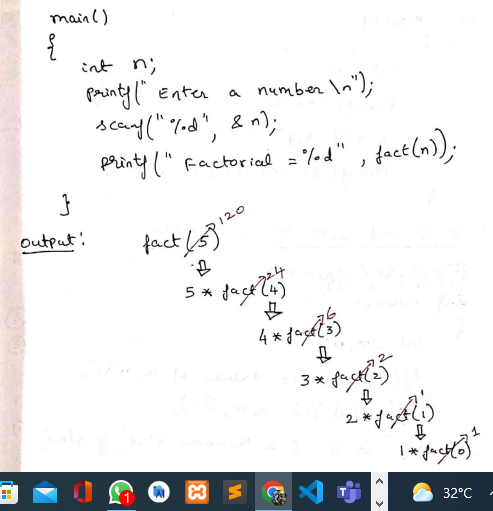 main()
{
int n;
printf(" Enter a number \n");
scanf("%d", & n);
printf(" Factorial = %d" , fact(n));
}
output:
fact(5) 120
5 * fact(4) 24
4 * fact(3) 6
3 * fact(2) 2
2 * fact(1) 1
1 * fact(0) 1
1
32°C